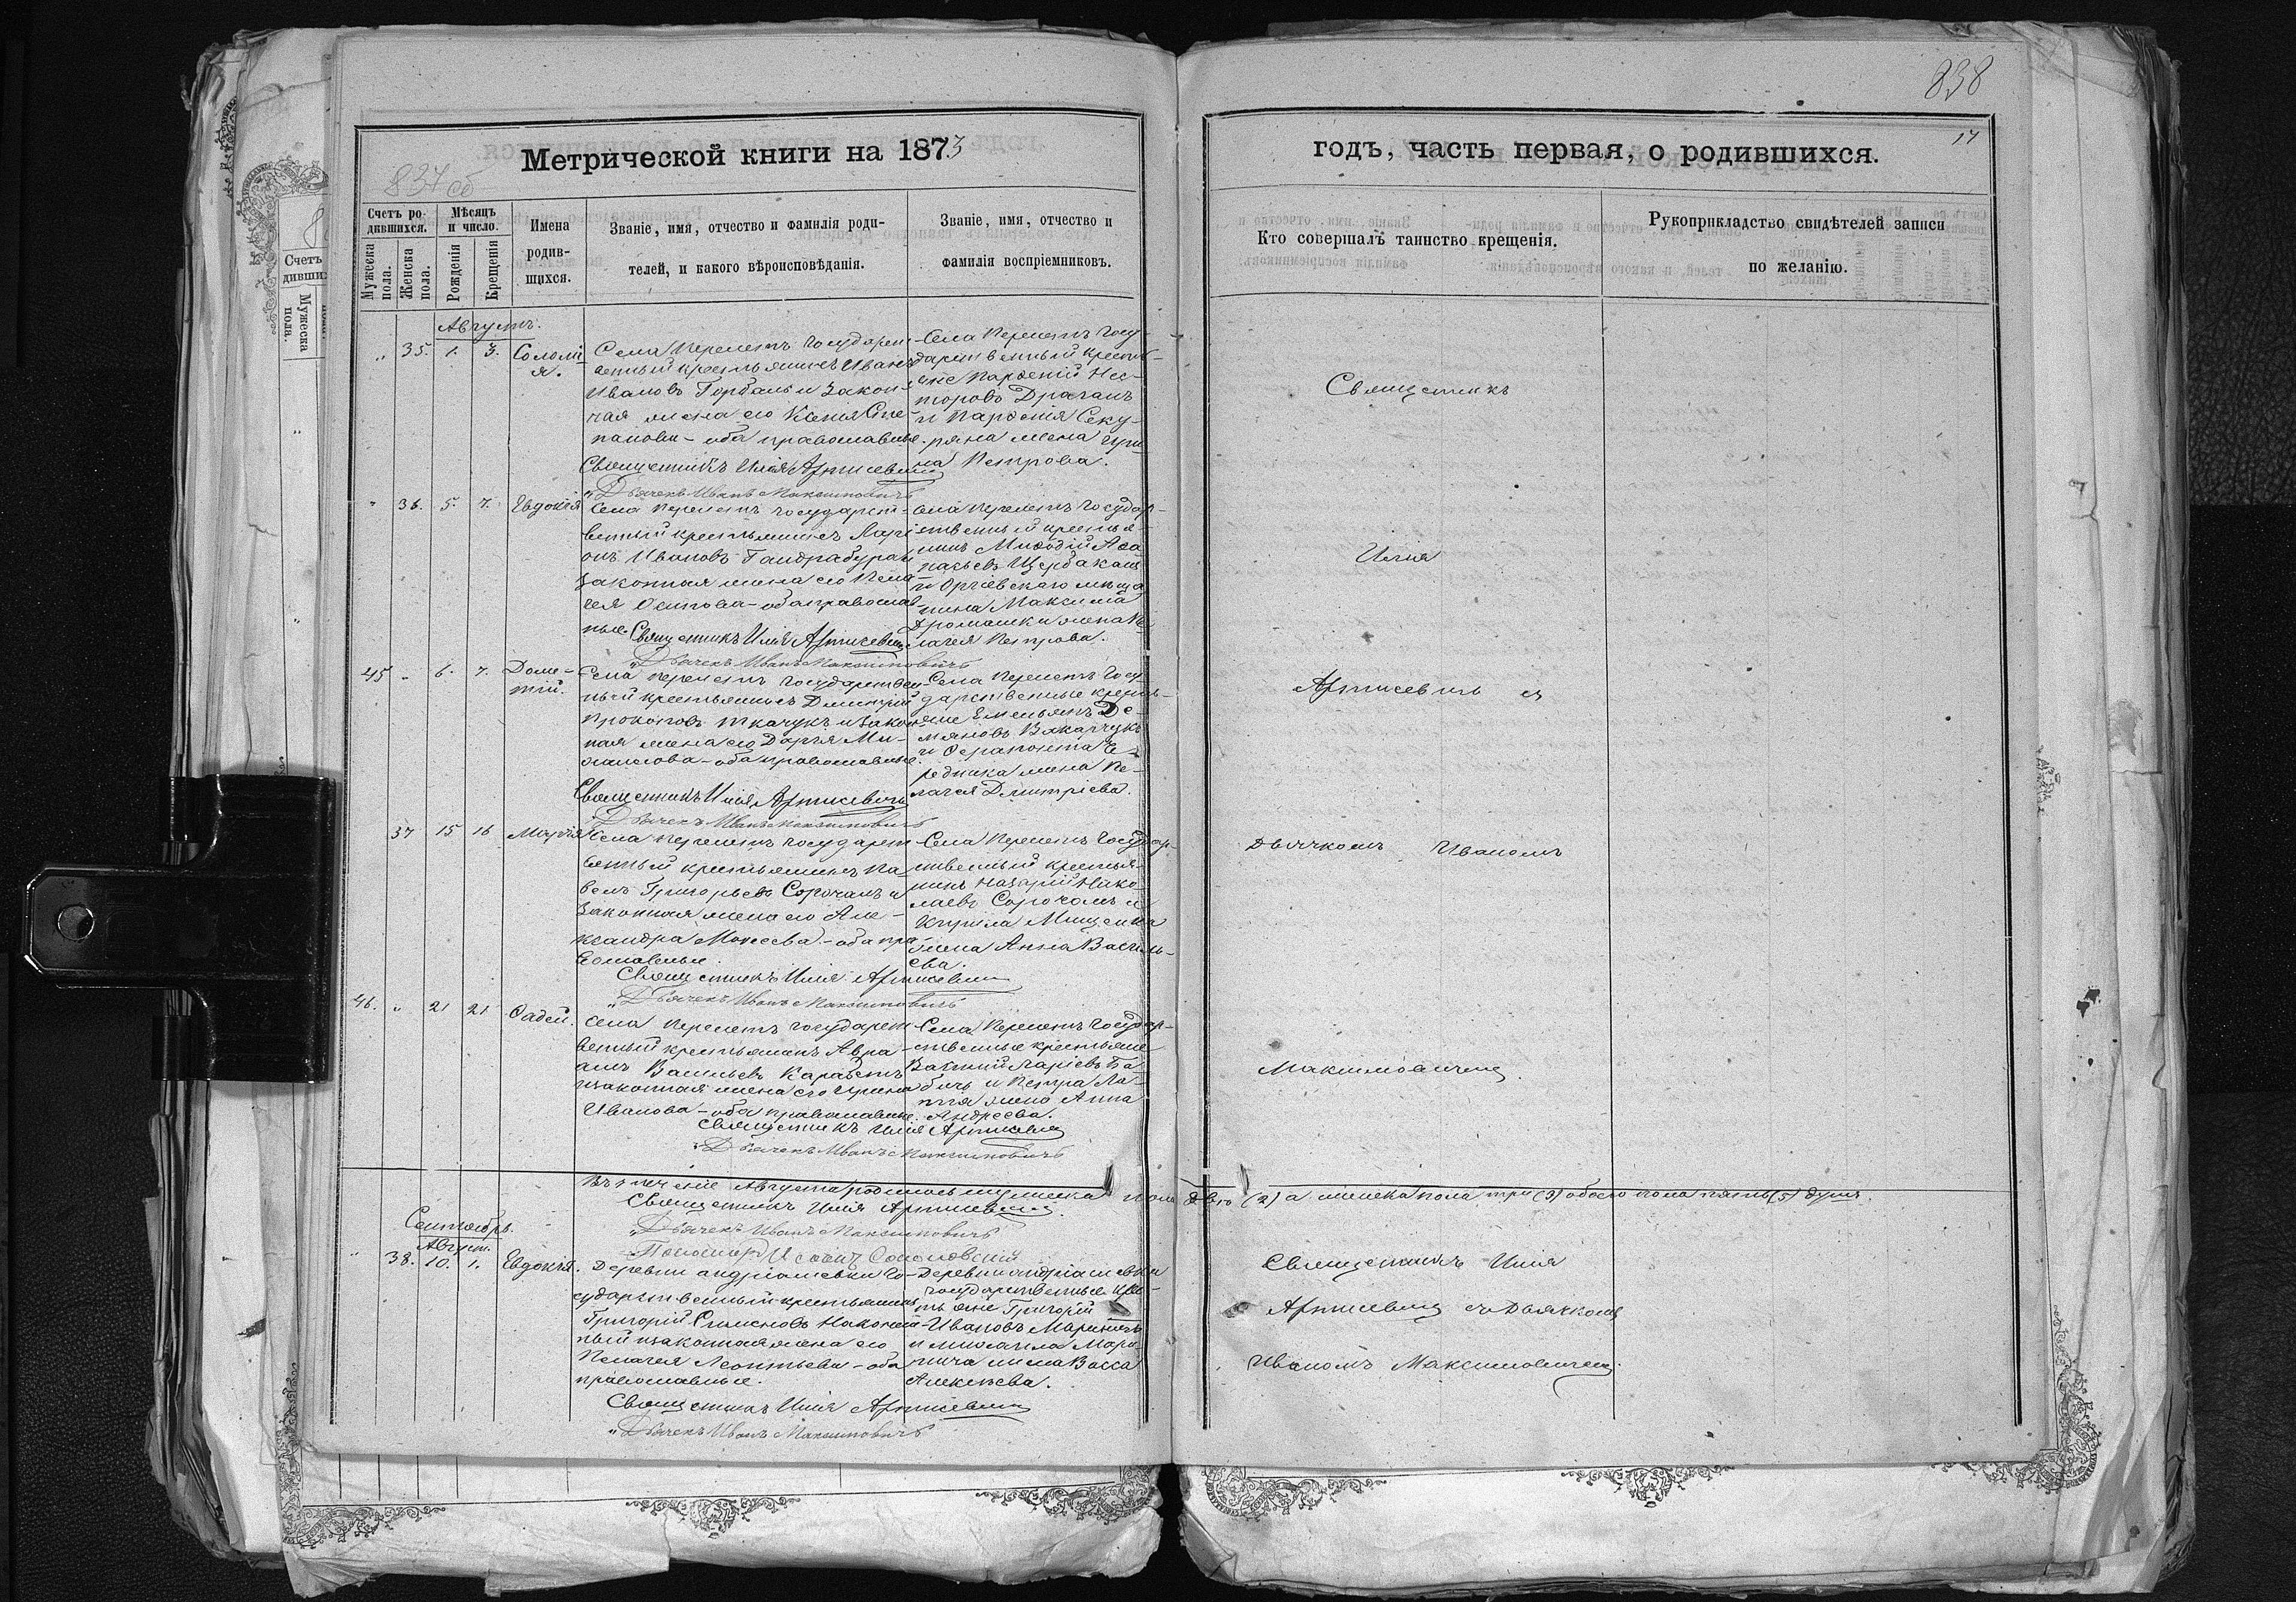 838
17
837 об
Метрической книги на 1873
годъ, часть первая, о родившихся.
Счетъ ро-
дившихся.
Мѣсяцъ
и число.
Мужеска
пола.
Женска
пола.
Рожденія
Крещенія
Имена
родив-
шихся.
Званіе, имя, отчество и фамилія роди-
телей, и какого вѣроисповѣданія.
Званіе, имя, отчество и
фамилія воспріемниковъ.
Кто совершалъ таинство крещенія.
Рукоприкладство свидѣтелей записи
по желанію.
Августъ.
" 35. 1. 3. Соломі-
я.
Села Перлетъ Государст-
венный крестьянинъ Иванъ
Ивановъ Горбанъ и закон-
ная жена его Ксенія Сте-
панова - оба православные.
Священникъ Илія Артисевичъ
Дьячекъ Иванъ Максимовичъ
Села Перлетъ Госу-
дарственный кресть-
яне Парѳеній Нес-
торовъ Драганъ
и Парѳенія Секу-
ряна жена Ири-
на Петрова.
" 36. 5. 7. Евдокія
Села Перлетъ государст-
венный крестьянинъ Ларі-
онъ Ивановъ Гандрабура и
законная жена его Пела-
гея Осипова - оба православ-
ные. Священникъ Илія Артисевичъ
Дьячекъ Иванъ Максимовичъ
Села Перлетъ Государ-
ственный крестья-
нинъ Меѳодій Аѳа-
насьевъ Щербакащ
и Оргіевскаго мѣща-
нина Максима
жена Пе-
лагея Петрова.
45 " 6. 7. Доме-
тій.
Села Перлетъ государствен-
ный крестьянинъ Дмитрій
Прокоповъ Ткачукъ и закон-
ная жена его Дарія Ми-
хаилова - оба православные.
Священникъ Илія Артисевичъ
Дьячекъ Иванъ Максимовичъ
Села Перлетъ Госу-
дарственные кресть-
яне Емельянъ Де-
мяновъ Вакарчукъ
и Ѳерапонта Че-
редника жена Пе-
лагея Дмитріева.
37 15 16 Марія
Села Перлетъ государст-
венный крестьянинъ Па-
велъ Григорьевъ Сорочанъ и
законная жена его Але-
ксандра Моисеева - оба пра-
вославные.
Священникъ Илія Артисевичъ
Дьячекъ Иванъ Максимовичъ
Села Перлетъ Государ-
ственный крестья-
нинъ Назарій Нико-
лаевъ Сорочанъ и
Кирила Мищенка
жена Анна Василь-
ева.
46. " 21 21 Ѳадей.
Села Перлетъ государст-
венный крестьянинъ Авра-
амъ Васильевъ Карабетъ
и законная жена его Ирина
Иванова - оба православные.
Священникъ Илія Артисевичъ
Дьячекъ Иванъ Максимовичъ
Села Перлетъ Государ-
ственные крестьяне
Ба-
бичъ и Петра
жена Анна
Андреева.
Священникъ
Илія
Артисевичъ съ
Дьячкомъ Иваномъ
Максимовичемъ.
Въ теченіе Августа родилось мужеска пола два (2) а женска пола три (3) обоего пола пять (5) душъ.
Священникъ Илія Артисевичъ
Дьячекъ Иванъ Максимовичъ
Пономарь Соколовскій
Сентябрь.
Август.
" 38. 10. 1. Евдокія.
Деревни Андріашевки Го-
сударственный крестьянинъ
Григорій Симеоновъ Наконеч-
ный и законная жена его
Пелагея Леонтьева - оба
православные.
Священникъ Илія Артисевичъ
Дьячекъ Иванъ Максимовичъ
Деревни Андріашевки
государственные кре-
стьяне Григорій
Ивановъ Мариничъ
и Михаила Мари-
нича жена Васса
Алексѣева.
Священникъ Илія
Артисевичъ съ Дьячкомъ
Иваномъ Максимовичемъ.